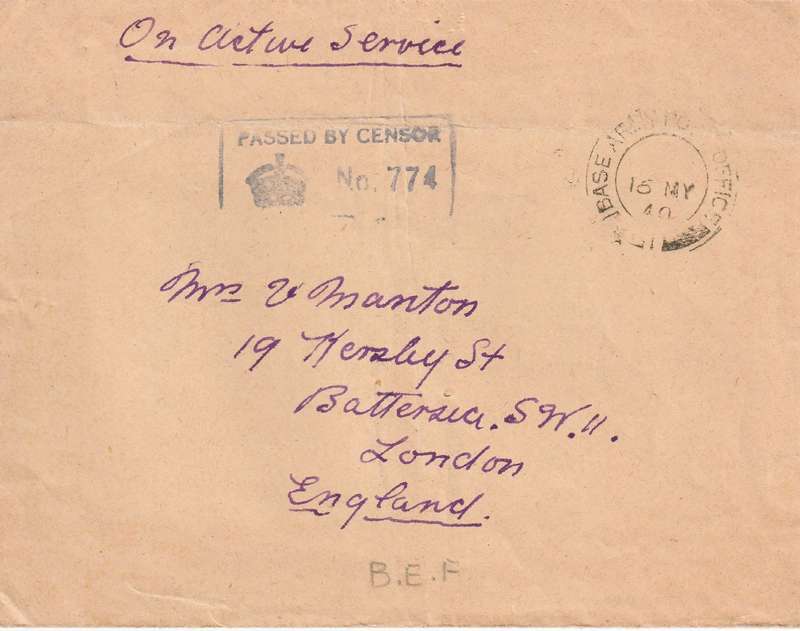 On Active Service
PASSED BY CENSOR
No. 774
BASE ARMY POST OFFICE
15 MY
40
Mrs V Manton
19 Kersley St
Battersea. S.W.11.
London
England.
B.E.F